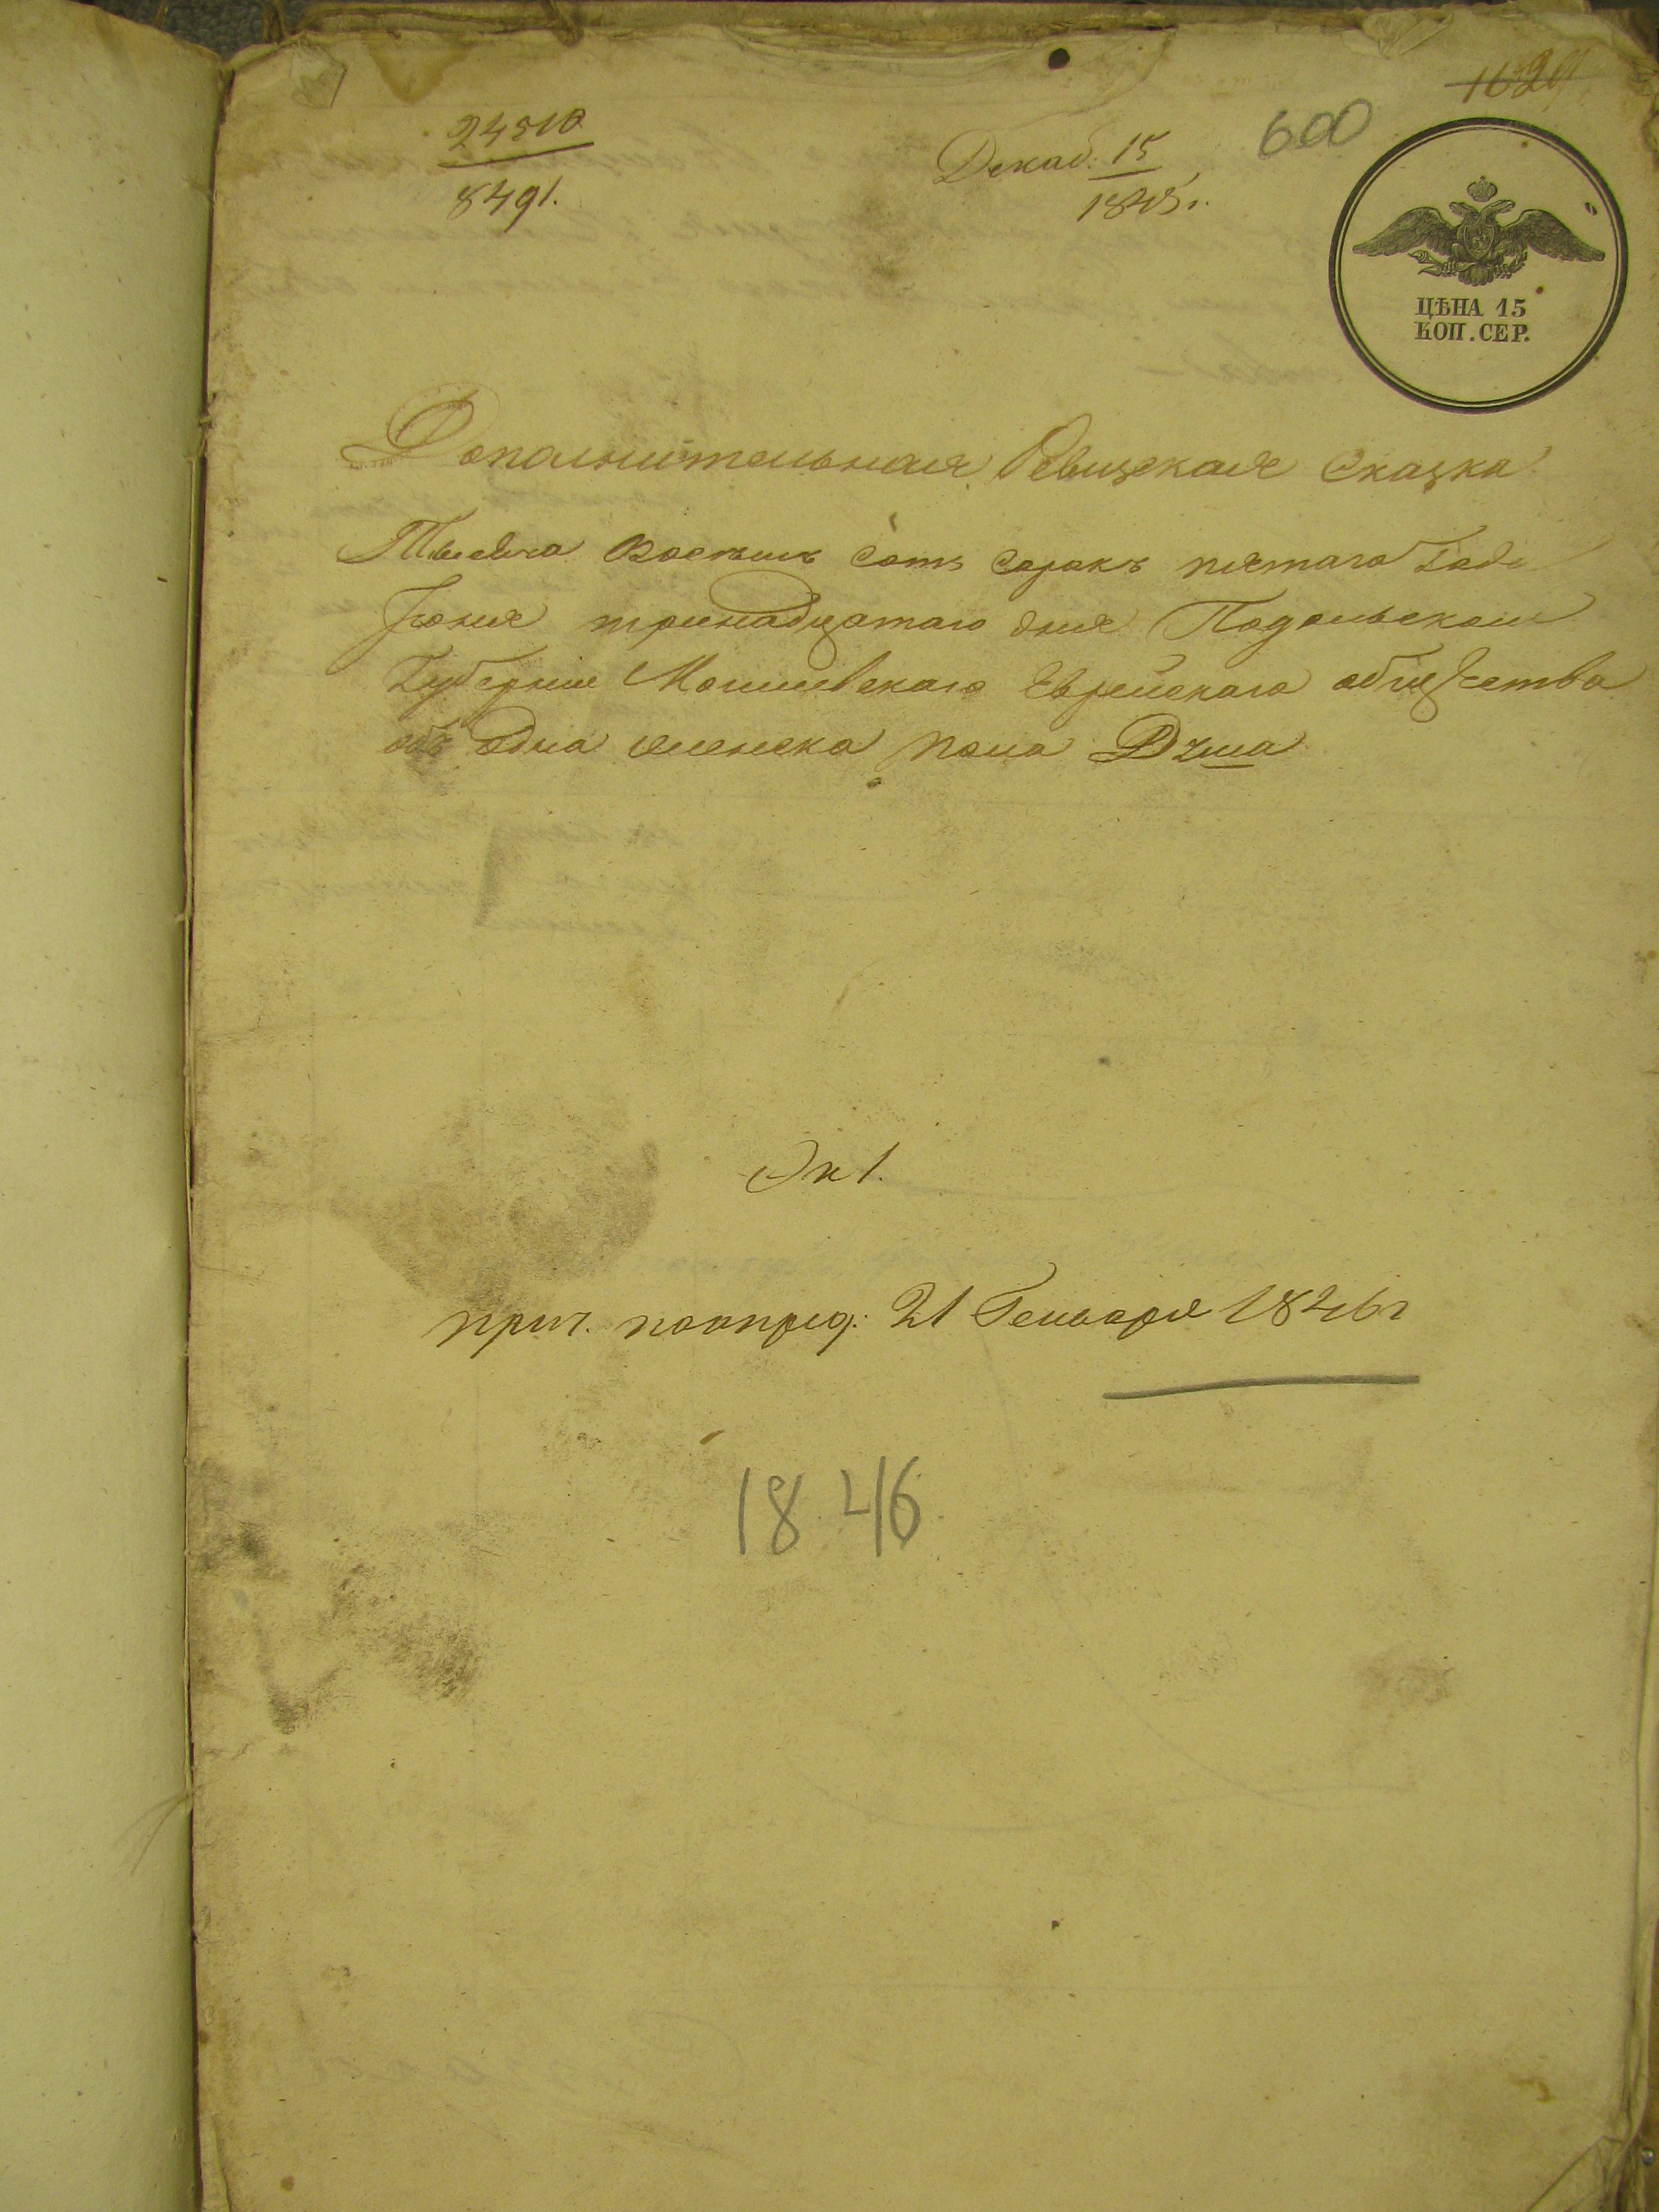 24510
8491.
Декаб. 15
1845 г.
600
ЦѢНА 15
КОП. СЕР.
Дополнительная Ревизская Сказка
Тысеча восемь сотъ сорокъ пятаго Года
Іюня тринадцатаго дня Подольской
Губерніи Могилевскаго Еврейскаго общества
объ одна женска пола
прич. 21 Генваря 1846 г
1846